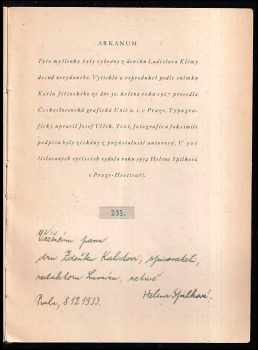 ARKANUM
Tyto myšlenky byly vybrány z deníku Ladislava Klímy
dosud nevydaného. Vytiskla a reprodukci podle snímku
Karla Jičínského ze dne 30. května roku 1927 provedla
Československá grafická Unie a. s. v Praze. Typogra-
ficky upravil Josef Vlček. Text, fotografie a faksimile
podpisu byly získány z pozůstalosti autorovy. V
číslovaných výtiscích vydala roku 1933 Helena Spilková
v Praze-Hostivaři.
235.
Váženému panu
dru Zdeňku Kalistovi, spisovateli,
redaktoru Lumíru, uctivě
Praha, 8.12.1933. Helena Spilková.